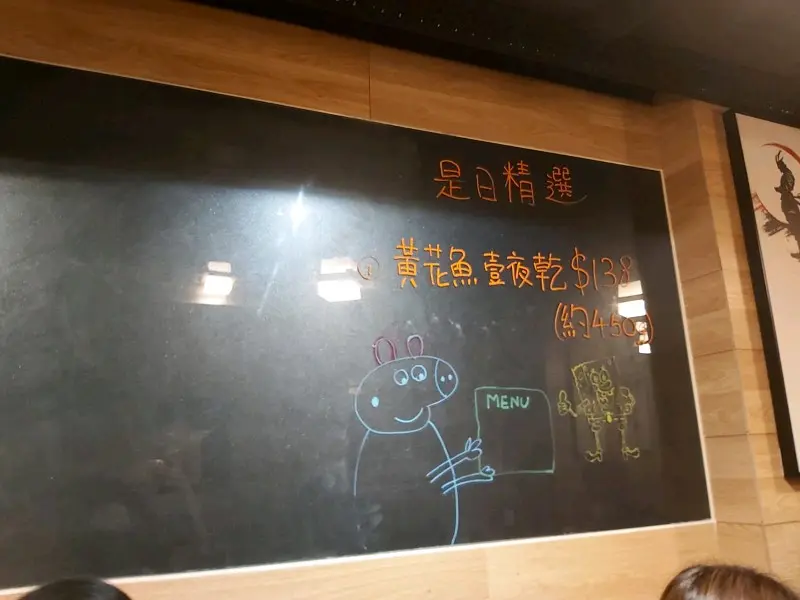 是日精選
① 黃花魚壹夜乾 $138
(約450g)
MENU